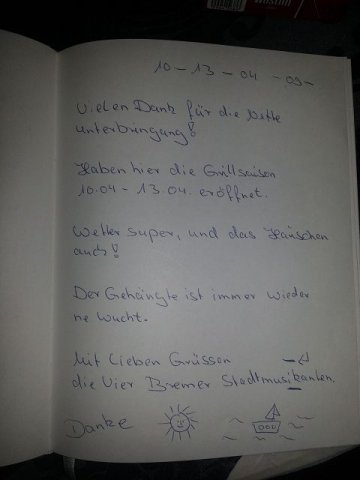 10 - 13 - 04 - 09 -
Vielen Dank für die Nette
unterbringung!
Haben hier die Grillsaison
10.04 - 13.04. eröffnet.
Wetter super, und das Häuschen
auch!
Der Gehängte ist immer wieder
ne Wucht.
Mit Lieben Grüssen
die Vier Bremer Stadtmusikanten.
Danke